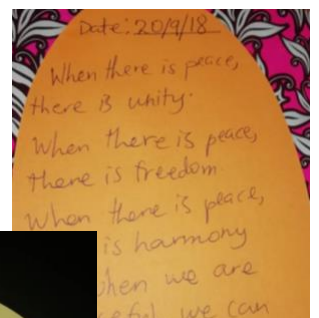 Date: 20/9/18
When there is peace,
there is unity.
When there is peace,
there is freedom
When there is peace,
is harmony
when we are
we can